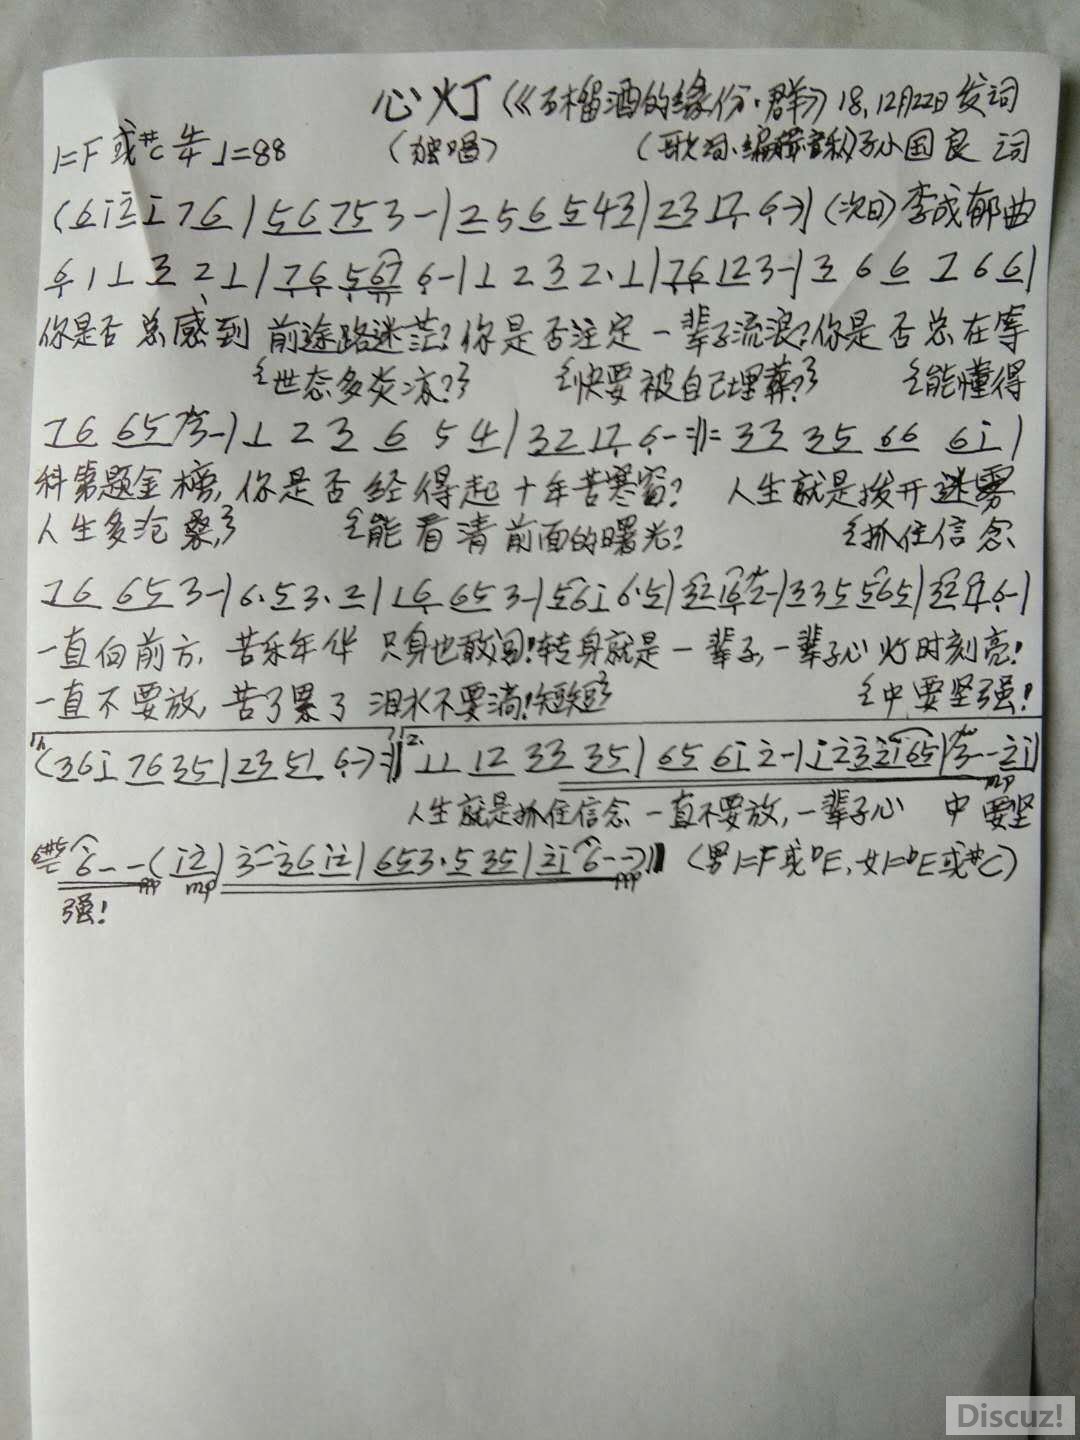 心灯(《石榴酒的缘份·群》)18,12月22日发词
1=F或#C 4/4 ♩=88 (独唱) (歌词、编辑 ) 孙国良 词
(6 i 2 i 7 6 | 5 6 7 5 3 - | 2 5 6 5 4 3 | 2 3 1 7 6 -) | (次日) 李成郁曲
6 1 1 3 2 1 | 7 6 5 6 7 6 - | 1 2 3 2· 1 | 7 6 1 2 3 - | 3 6 6 7 6 6 |
你是否 总感到 前途路迷茫?你是否注定 一辈子流浪?你是否总在等
{世态多炎凉?} {快要被自己埋葬?} {能懂得
7 6 6 5 3 - | 1 2 3 6 5 4 | 3 2 1 7 6 - :‖: 3 3 3 5 6 6 6 i |
科第题金榜,你是否 经得起 十年苦寒窗? 人生就是拨开迷雾
人生多沧桑,} {能看清前面的曙光? {抓住信念
7 6 6 5 3 - | 6· 5 3· 2 | 1 6 6 5 3 - | 5 6 i 6· 5 | 3 2 1 6 2 - | 3 3 5 5 6 5 | 3 2 1 7 6 - |
一直向前方, 苦乐年华 只身也敢闯!转身就是一辈子,一辈子心灯时刻亮!
一直不要放, 苦了累了 泪水不要淌!短短} {中要坚强!
1. (3 6 i 7 6 3 5 | 2 3 5 1 6 -) :‖ 2. 1 1 1 2 3 3 3 5 | 6 5 6 i 2 - | i 2 3 2 i 6 5 | 3 - - 2 i |
mp
人生就是抓住信念 一直不要放,一辈子心 中要坚
6 - - (i 2 | 3 - 3 6 i 2 | 6 5 3· 5 3 5 | 2 i 6 - -) ‖ (男1=F或bE,女1=bE或#C)
mp mp mp
强!
Discuz!